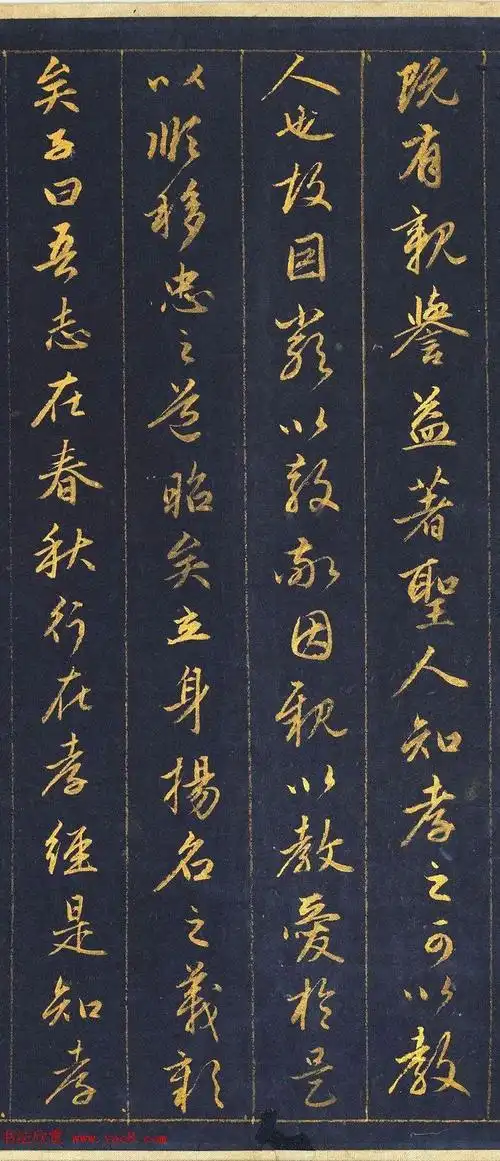 既有親譽益著聖人知孝之可以教
人也故因嚴以教敬因親以教愛於是
以順移忠之道昭矣立身揚名之義彰
矣子曰吾志在春秋行在孝經是知孝
书法欣赏 www.yac8.com